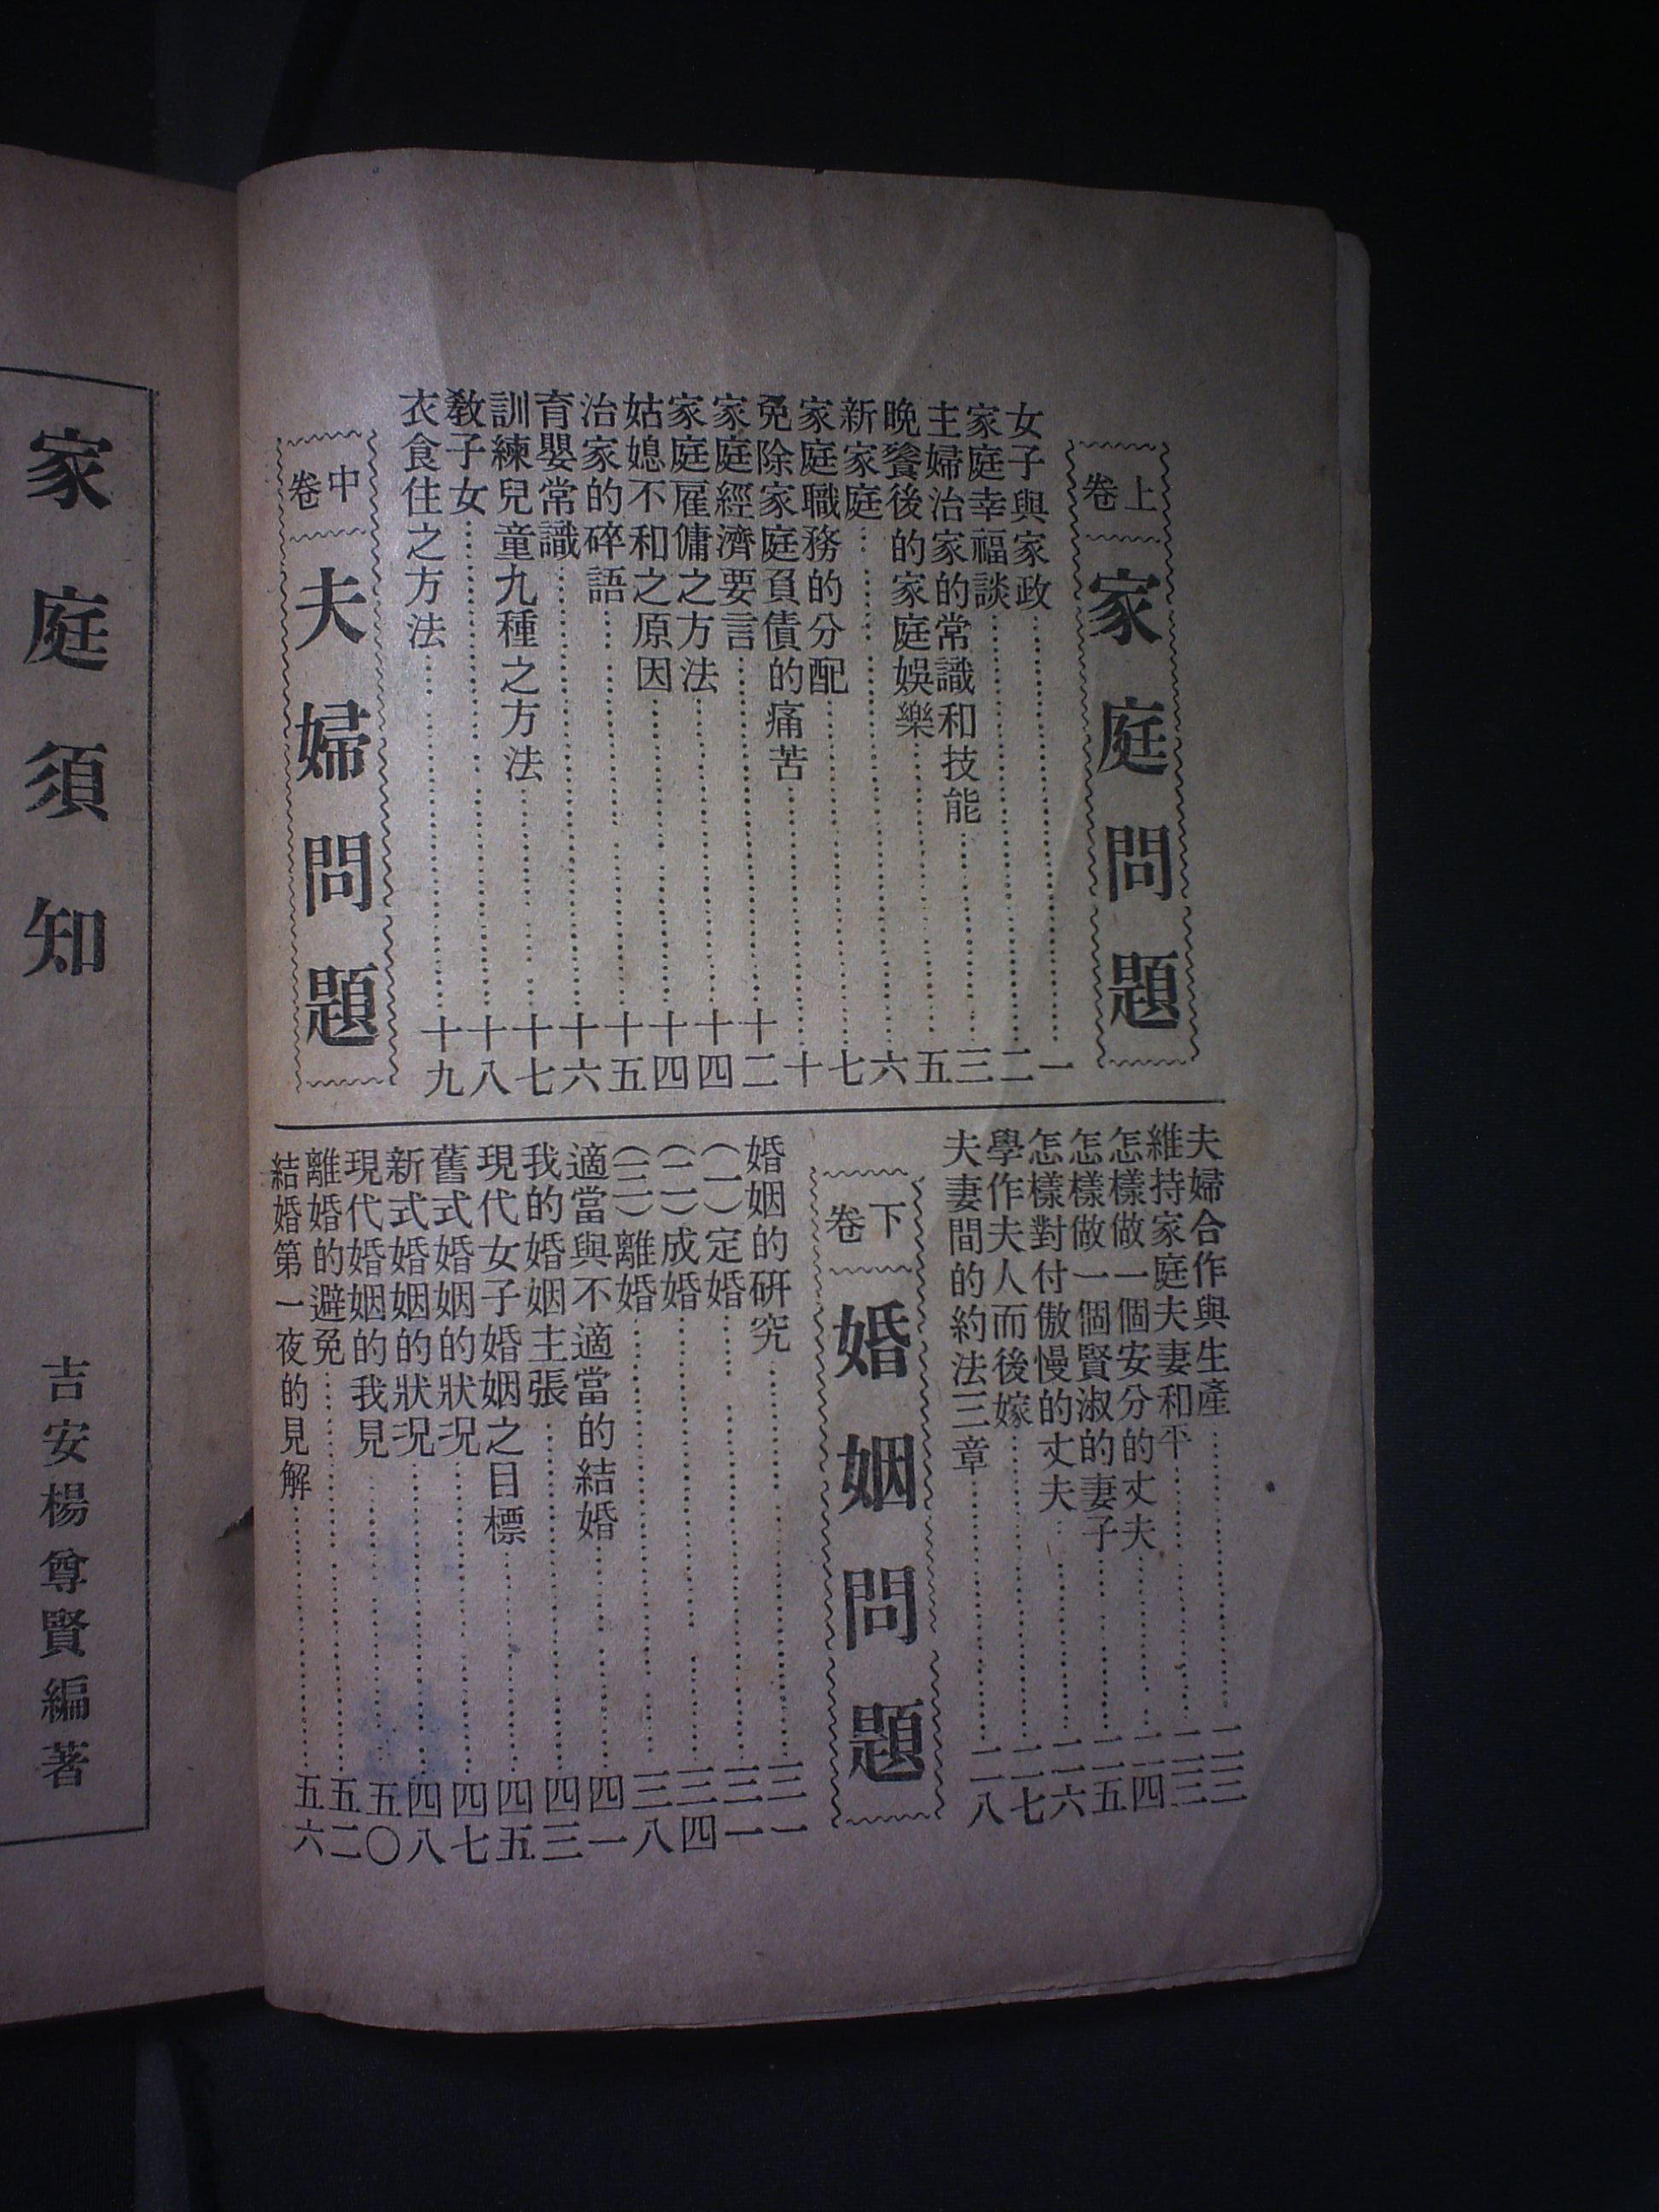 上卷 家庭問題
女子與家政……一
家庭幸福談……二
主婦治家的常識和技能……三
晚餐後的家庭娛樂……五
新家庭……六
家庭職務的分配……七
免除家庭負債的痛苦……十
家庭經濟要言……十二
家庭雇傭之方法……十四
姑媳不和之原因……十四
治家的碎語……十五
育嬰常識……十六
訓練兒童九種之方法……十七
教子女……十八
衣食住之方法……十九
中卷 夫婦問題
夫婦合作與生產……二三
維持家庭夫妻和平……二三
怎樣做一個安分的丈夫……二四
怎樣做一個賢淑的妻子……二五
怎樣對付傲慢的丈夫……二六
學作夫人而後嫁……二七
夫妻間的約法三章……二八
下卷 婚姻問題
婚姻的研究……三一
(一)定婚……三一
(二)成婚……三四
(三)離婚……三八
適當與不適當的結婚……四一
我的婚姻主張……四三
現代女子婚姻之目標……四五
舊式婚姻的狀況……四七
新式婚姻的狀況……四八
現代婚姻的我見……五〇
離婚的避免……五二
結婚第一夜的見解……五六
家庭須知
吉安楊尊賢編著